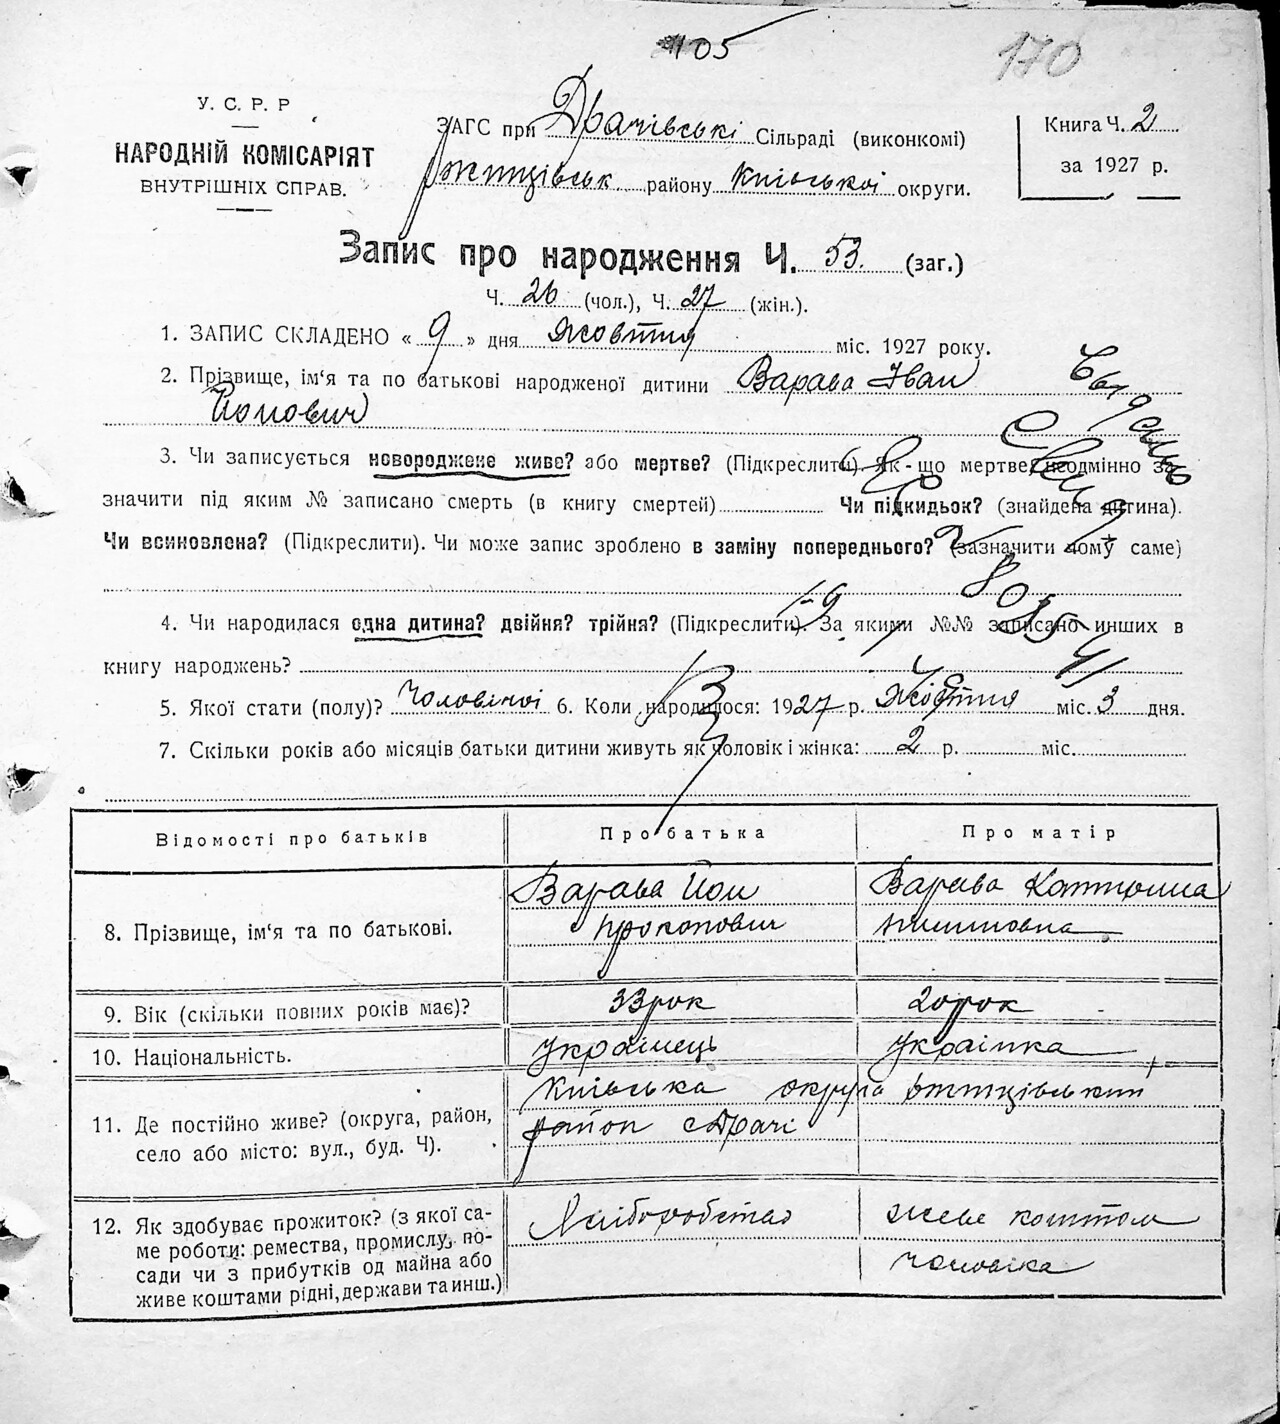 105
170
У. С. Р. Р
НАРОДНІЙ КОМІСАРІЯТ
ВНУТРІШНІХ СПРАВ.
ЗАГС при Драчівські Сільраді (виконкомі)
ржищівськ району Київської округи.
Книга Ч. 2
за 1927 р.
Запис про народження Ч. 53. (заг.)
Ч. 26 (чол.), Ч. 27 (жін.).
1. ЗАПИС СКЛАДЕНО « 9 » дня жовтня міс. 1927 року.
2. Прізвище, ім'я та по батькові народженої дитини Варава Іван
Йопович
3. Чи записується новороджене живе? або мертве? (Підкреслити). Як-що мертве, неодмінно за-
значити під яким № записано смерть (в книгу смертей) Чи підкидьок? (знайдена дитина).
Чи всиновлена? (Підкреслити). Чи може запис зроблено в заміну попереднього? (зазначити чому саме)
4. Чи народилася одна дитина? двійня? трійня? (Підкреслити). За якими №№ записано инших в
книгу народжень?
5. Якої стати (полу)? Чоловічої 6. Коли народилося: 1927 р. Жовтня міс. 3 дня.
7. Скільки років або місяців батьки дитини живуть як чоловік і жінка: 2 р. міс.
Відомості про батьків Про батька Про матір
8. Прізвище, ім'я та по батькові. Варава Йоп Варава
прокопович
9. Вік (скільки повних років має)? 33 рок 20 рок
10. Національність. Українець Українка
11. Де постійно живе? (округа, район, Київська округа ржищівський
село або місто: вул., буд. Ч). район с Драчі
12. Як здобуває прожиток? (з якої са- Хліборобство живе коштом
ме роботи: ремества, промислу, по- чоловіка
сади чи з прибутків од майна або
живе коштами рідні, держави та инш.)